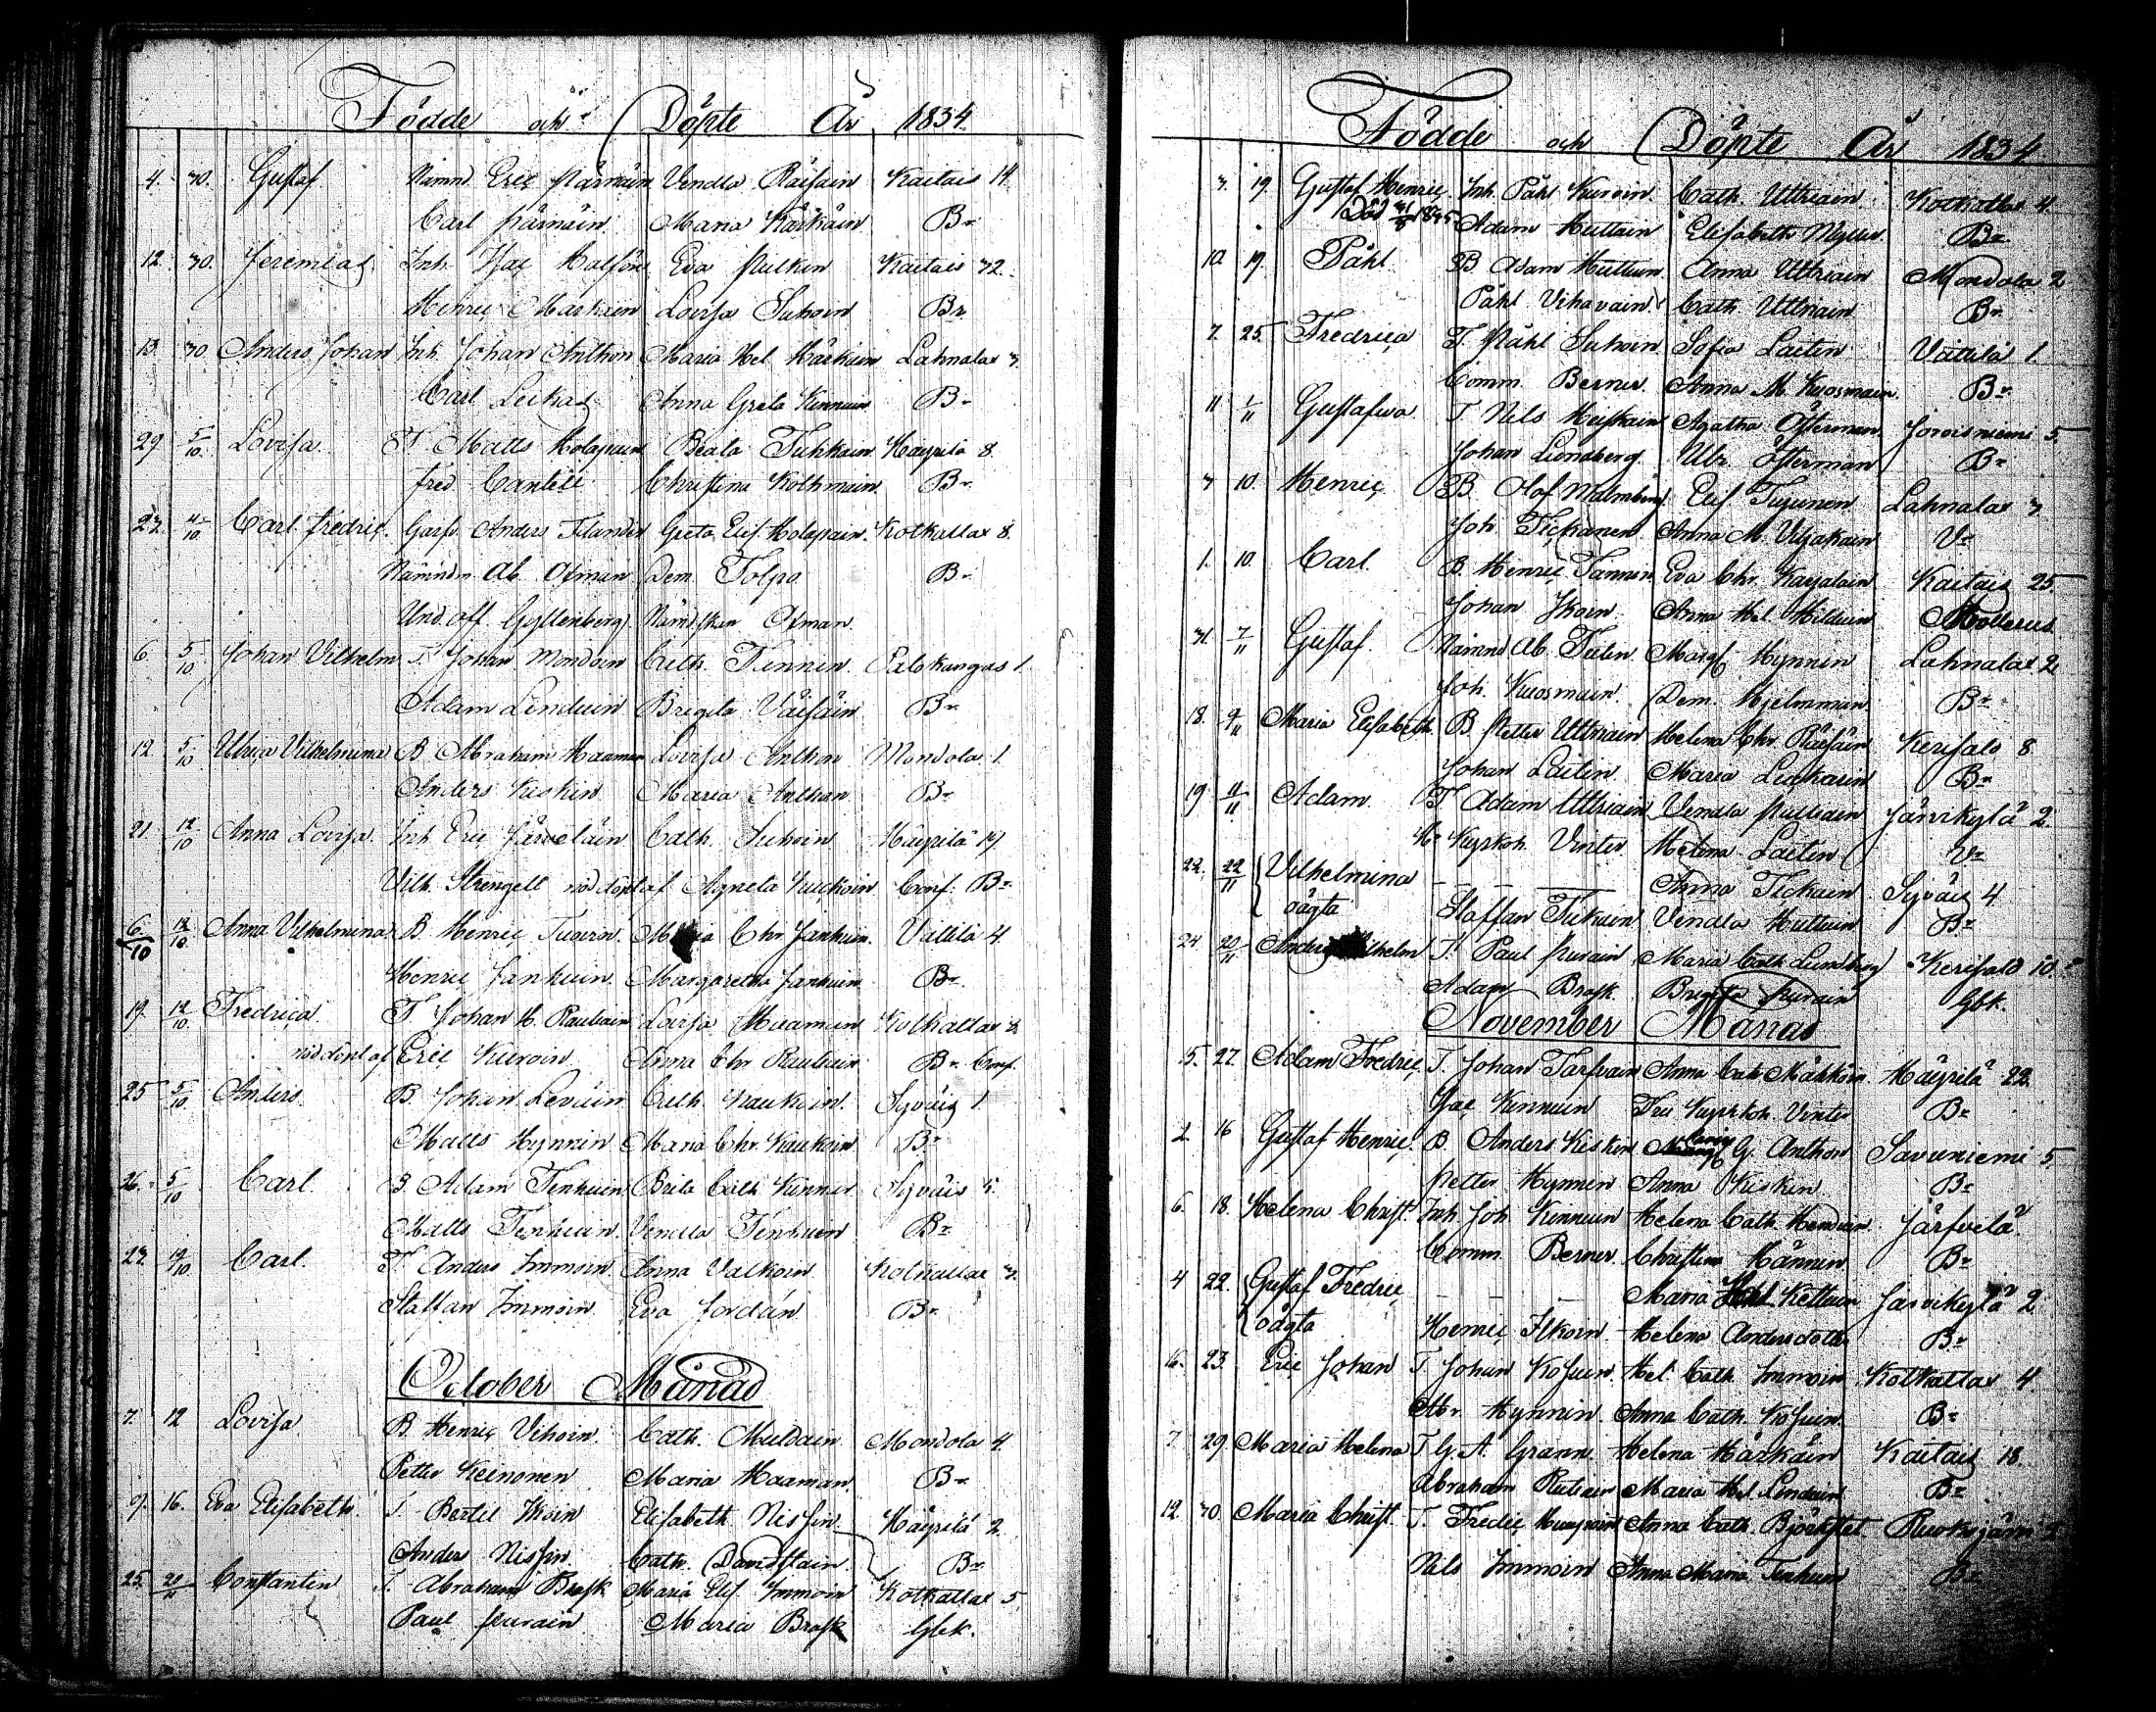 Födde och Döpte År 1834.
4. 30. Gustaf Nämnd. Eric Pärnäin Vendla Räisäin Kaitais 14
Carl Pärnäin Maria Kärkäin Br
12. 30. Jeremias Inh. Isac Halfön Eva Pulkin Kaitais 32.
Henric Markain Lovisa Suhoin Br
13. 30 Anders Johan Inh. Johan Anthon Maria Hel. Härkäin Lahnalax 3
Carl Leikas Anna Greta Kinnuin Br
29 5/10 Lovisa T. Matts Holapain Beata Tuhkain Häyrilä 8.
Fred. Cantell Christina Kolhmain Br
23. 4/10 Carl Fredric. Anders Greta Elis. Holapain Kotkallax 8.
Nämndm. Ab. Ofman Dem. Tolpo Br
Und. off. Gyllenberg. Nämdskan Ofman.
6. 5/10 Johan Vilhelm T. Johan Mondoin Cath. Tinnin Pelokangas 1.
Adam Linduin Bregita Väisäin Br
12 5/10 Ulrica Vilhelmina B. Abraham Haaman Lovisa Anthon Mondola 1.
Anders Kiskin Maria Anthon Br
21. 12/10 Anna Lovisa. Inh. Eric Järveläin Cath. Suhoin Häyrilä 19.
Vilh. Strengell nöddöpt af Agneta Conf. Br
6/10 12/10 Anna Vilhelmina B. Henric Tuovin. Maria Chr. Janhuin. Vättilä 4.
Henric Janhuin. Margaretha Janhuin Br
19. 12/10. Fredrica T. Johan H. Rautiain Lovisa Muamuin Kotkallax 8.
nöddöpt af Eric Kuroin Anna Chr. Rautiain Br. Conf.
25 5/10 Anders. B. Johan Leväin Cath. Kaukoin. Syväis 1.
Matts Hynnin Maria Chr. Kaukoin Br
26. 5/10 Carl. B. Adam Tenhuin Brita Cath. Kinnuin Syväis 5.
Matts Tenhuin. Vendla Tenhuin Br
23. 19/10 Carl. T. Anders Immoin. Anna Valkoin Kotkallax 3.
Staffan Immoin. Eva Jordän. Br.
October Månad
7. 12 Lovisa. B. Henric Vihoin. Cath. Muldain. Mondola 4.
Petter Keinonen Maria Haaman Br
9. 16. Eva Elisabeth. T. Bertil Ikoin Elisabeth Nissin. Häyrilä 2.
Anders Nissin Cath. Danstlain. Br
25. Constantin T. Abraham Brask Maria Elis. Immoin Kotkallax 5.
Paul Purain Maria Brask Gbk.
Födde och Döpte År 1834
3. 19 Gustaf Henric Inh. Påhl Kuroin. Cath. Uttriain Kotkallax 4.
Död 1835 Adam Huttuin Elisabeth Myller. Br.
10. 19. Påhl B. Adam Huttuin. Anna Uttriain Mondola 2
Påhl Vihavain Cath. Uttriain. Br.
7. 25. Fredrica T. Påhl Suhoin Sofia Laitin Vättilä 1.
Comm. Berner. Anna M. Kuosmain. Br.
11 1/11 Gustafwa T. Nils Heiskain Agatha Österman. Joroisniemi 5.
Johan Lundberg. Ulr. Österman Br
3 10. Henric B. Olof Malmberg Elis. Tujunen Lahnalax 3
Joh. Tickanen Anna M. Viljakain Vr
1. 10. Carl. B. Henric Tannin Eva Chr. Karjalain Kaitais 25.
Johan Ikoin. Anna Hel. Hilduin Mollerus.
31. 7/11 Gustaf. Nämnd Ab. Tulin. Marg. Hynnin Lahnalax 2
Joh. Kuosmain. Dem. Hjelmman. Br.
18. 9/11 Maria Elisabeth. B. Petter Uttriain Helena Chr. Räisäin Kerisalo 8
Johan Laitin. Maria Leskain Br
19 11/11 Adam. T. Adam Uttriain Vendla Pulliain Järvikylä 2.
Hr Kyrkoh. Vinter. Helena Laitin Vr
22. 22/11 Vilhelmina — — — Anna Tickain Syväis 4
oägta Staffan Tickain Vendla Huttuin Br
24 20/11 Anders Vilhelm T. Paul Purain Maria Cath. Lundberg Kerisalo 10.
Adam Brask. Bregita Purain Gbk.
November Månad
5. 27. Adam Fredric T. Johan Tarfvain Anna Cath. Häkköin. Häyrilä 22.
Isac Kinnuin Fru Kyrkoh. Vinter Br
2. 16 Gustaf Henric B. Anders Kiskin G. Anthon Savuniemi 5.
Petter Hynnen Anna Kiskin Br
6. 18. Helena Christ. Inh. Joh. Kinnuin Helena Cath. Järfvelä.
Comm. Berner. Christina Hännin Br
4 22. Gustaf Fredric — — — Maria Kettuin Järvikylä 2.
oägta Henric Ikoin Helena Andersdotter Br
16. 23. Eric Johan T. Johan Kosuin. Hel. Cath. Immoin Kotkallax 4.
Abr. Hynnin. Anna Cath. Kosuin. Br
7. 29. Maria Helena T. G. A. Grann. Helena Härkäin Kaitais 18.
Abraham Maria Hel. Linduin Br
12. 30. Maria Christ. T. Fredric Anna Cath. Björkstet
Nils Immoin Anna Maria Tenhuin Br